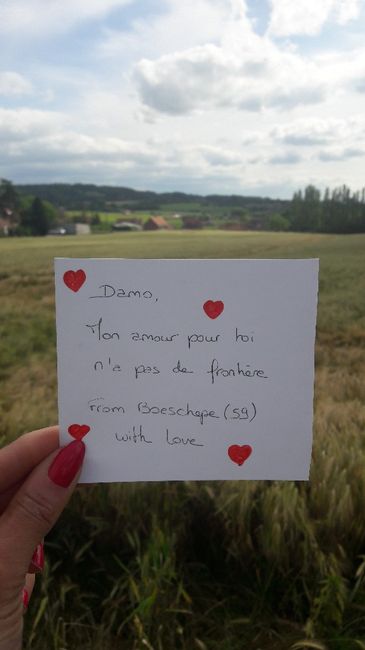 Damo,
Mon amour pour toi
n'a pas de frontière
From Boeschepe (59)
with love